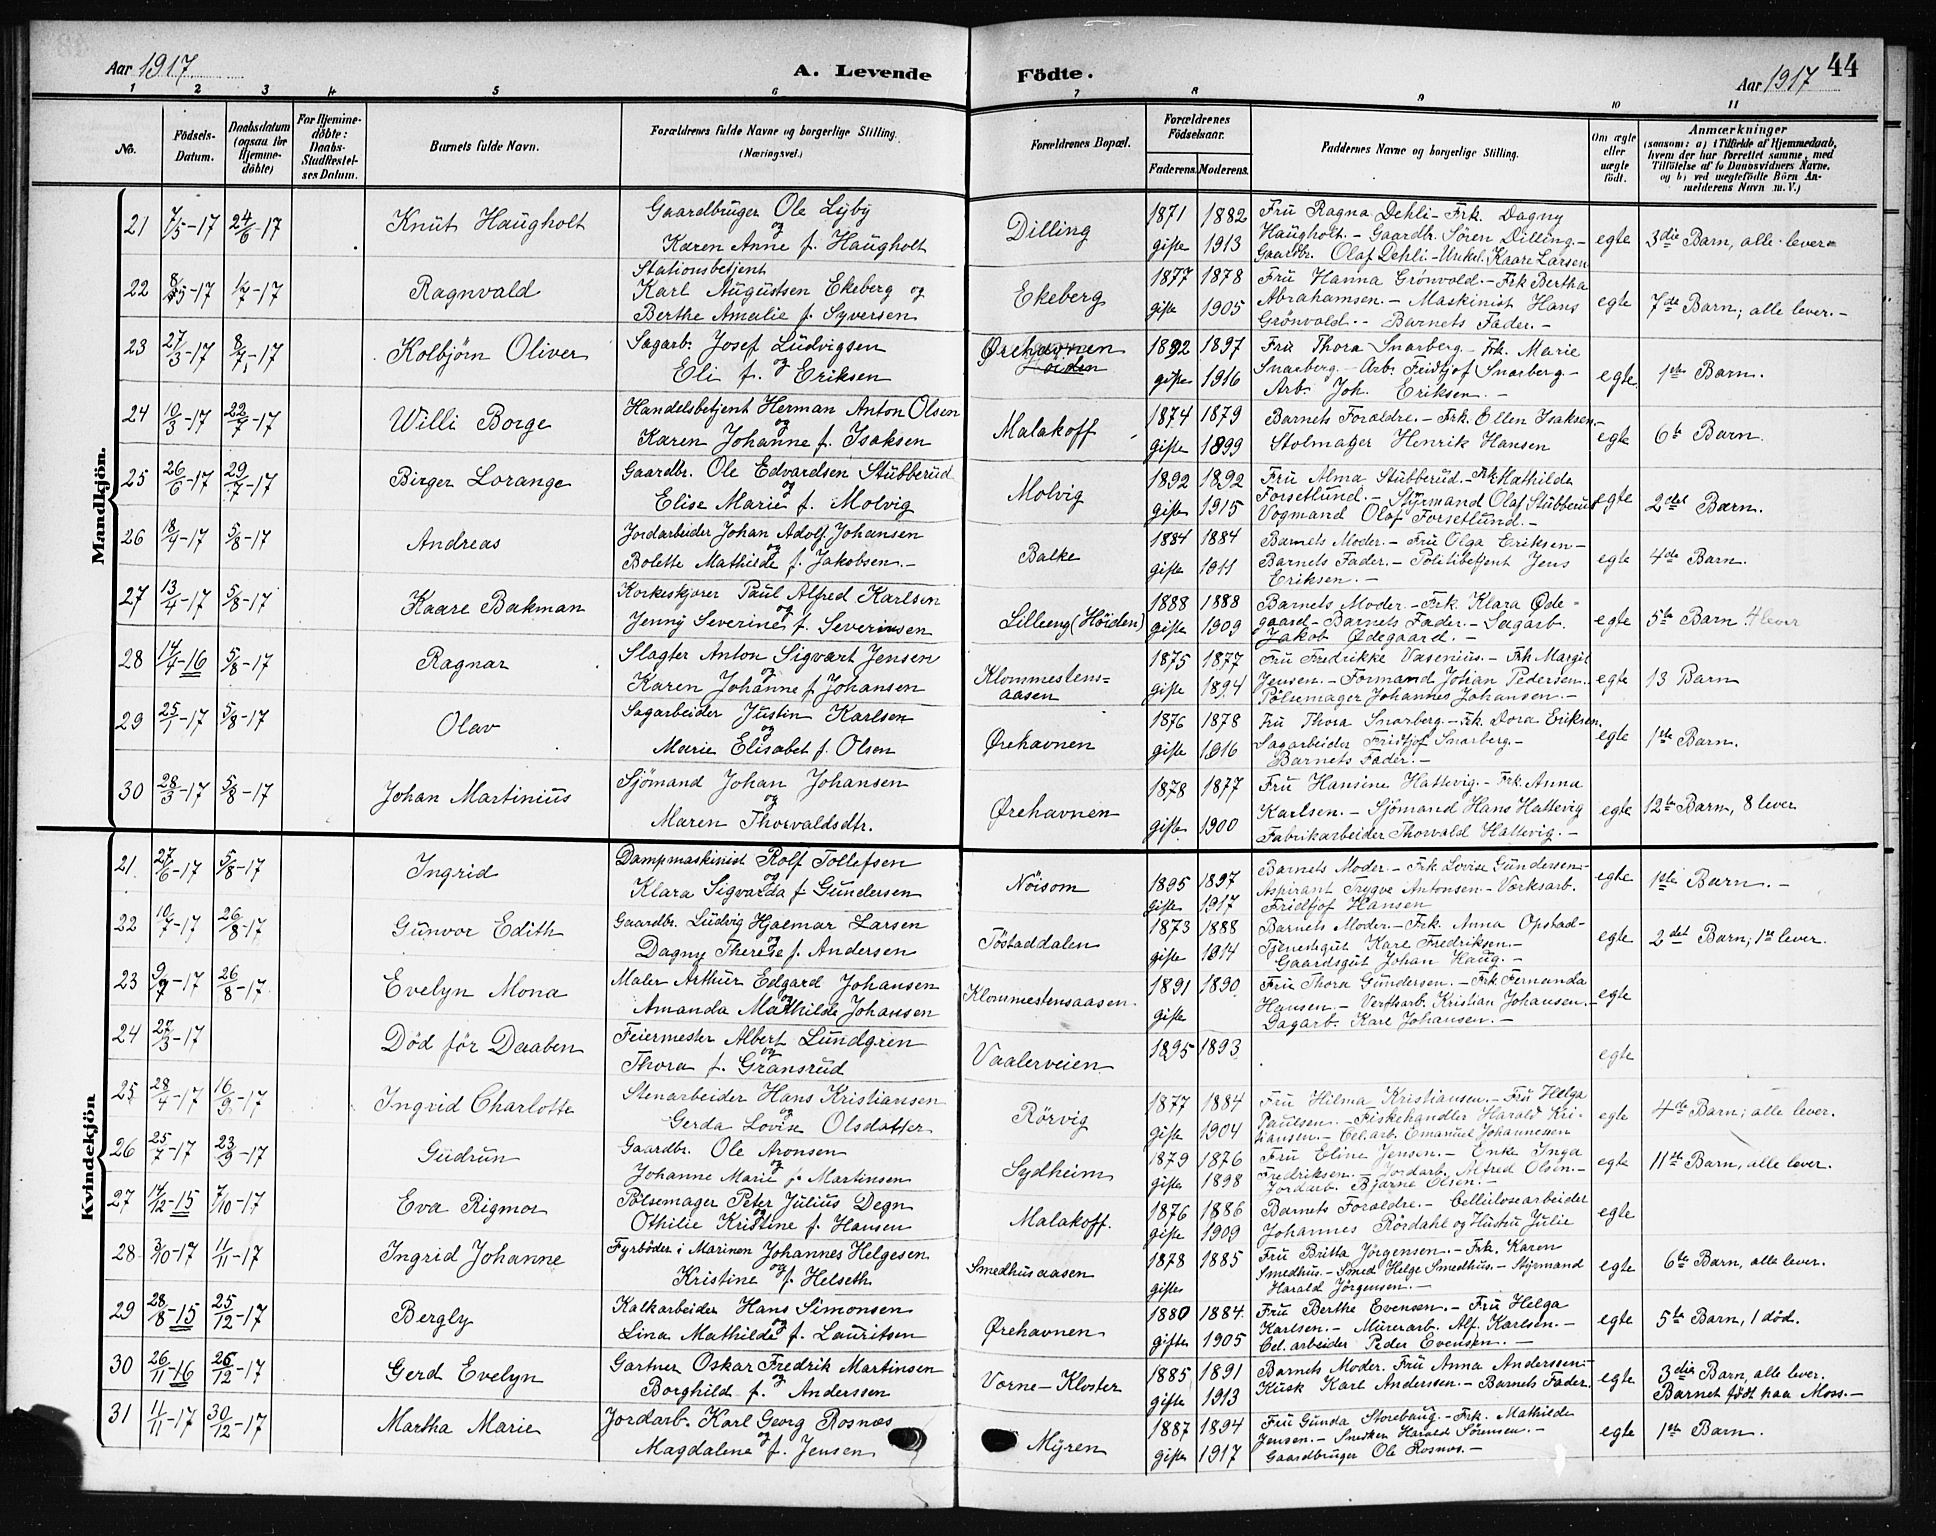 Aar 1917
A. Levende
Födte.
44
Aar 1917
1 2 3 4 5 6 7 8 9 10 11
No.
Födsels-
Datum.
Daabsdatum
(ogsaa for
Hjemme-
döbte)
For Hjemme-
döbte:
Daabs-
Stadfestel-
ses Datum.
Barnets fulde Navn.
Forældrenes fulde Navne og borgerlige Stilling.
(Næringsvei.)
Forældrenes Bopæl.
Forældrenes
Födselsaar.
Faderens. Moderens.
Faddernes Navne og borgerlige Stilling.
Om ægte
eller
uægte
født.
Anmærkninger
(saasom: a) i Tilfælde af Hjemmedaab,
hvem der har forrettet samme, med
Tilföielse af to Daabsvidners Navne,
og b) ved uægtefödte Börn An-
melderens Navn m. V.)
Mandkjön.
21 7/5-17 24/6-17 Knut Haugholt
Gaardbruger Ole Lyby
og
Karen Anne f. Haugholt
Dilling
1871 1882
gifte 1913
Fru Ragna Dehli - Frk. Dagny
Haugholt. - Gaardbr. Sören Dilling. -
Gaardbr. Olaf Dehli - Unkel. Kaare Larsen
egte 3die Barn, alle lever
22 8/5-17 1/7-17 Ragnvald
Stationsbetjent
Karl Augustsen Ekeberg og
Berthe Amalie f. Syversen
Ekeberg
1877 1878
gifte 1905
Fru Hanna Grönvold - Frk Bertha
Abrahamsen. - Maskinist Hans
Grönvold. - Barnets Fader. -
egte 7de Barn; alle lever. -
23 27/3-17 8/7-17 Kolbjörn Oliver
Sagarb. Josef Ludvigsen
og
Eli f. Eriksen
Ørehavnen
Höiden
1892 1897
gifte 1916
Fru Thora Snarberg - Frk. Marie
Snarberg. - Arb. Feidtjof Snarberg -
Arb. Joh. Eriksen. -
egte 1ste Barn.
24 10/3-17 22/7-17 Willi Borge
Handelsbetjent Herman Anton Olsen
og
Karen Johanne f. Isaksen
Malakoff
1874 1879
gifte 1899
Barnets Forældre. - Frk. Ellen Isaksen -
Stolmager Henrik Hansen
egte 6te Barn.
25 26/6-17 29/7-17 Birger Lorange
Gaardbr. Ole Edvardsen Stubberud
og
Elise Marie f. Molvig
Molvig
1892 1892
gifte 1915
Fru Alma Stubberud. - Frk Mathilde
Forsetlund. - Styrmand Olaf Stubberud
Vogmand Olaf Forsetlund. -
egte 2det Barn.
26 18/4-17 5/8-17 Andreas
Jordarbeider Johan Adolf Johansen
og
Bolette Mathilde f. Jakobsen. -
Balke
1884 1884
gifte 1911
Barnets Moder. - Fru Olga Eriksen -
Barnets Fader. - Politibetjent Jens
Eriksen. -
egte 4de Barn.
27 13/4-17 5/8-17 Kaare Bakman
Korkeskjærer Paul Alfred Karlsen
og
Jenny Severine f. Severinsen
Lilleeng (Höiden)
1888 1888
gifte 1909
Barnets Moder - Frk. Klara Øde-
gaard - Barnets Fader. - Sagarb.
Jakob Ødegaard. -
egte 5te Barn 4 lever
28 14/4-16 5/8-17 Ragnar
Slagter Anton Sigvart Jensen
og
Karen Johanne f. Johansen
Klommestens=
aasen
1875 1877
gifte 1894
Fru Fredrikke Vasenius. - Frk Margit
Jensen. - Formand Johan Pedersen.
Pölsemager Johannes Johansen. -
egte 13 Barn
29 25/1-17 5/8-17 Olav
Sagarbeider Justin Karlsen
og
Marie Elisabet f. Olsen
Ørehavnen
1876 1878
gifte 1916
Fru Thora Snarberg. - Frk. Dora Eriksen.
Sagarbeider Fridtjof Snarberg. -
Barnets Fader. -
egte 1ste Barn.
30 28/3-17 5/8-17 Johan Martinius
Sjömand Johan Johansen
og
Maren Thorvaldsdtr.
Ørehavnen
1878 1877
gifte 1900
Fru Hansine Hattevig. - Frk. Anna
Karlsen. - Sjömand Hans Hattevig
Fabrikarbeider Thorvald Hattevig. -
egte 12te Barn, 8 lever
Kvindekjön
21 27/6-17 5/8-17 Ingrid
Dampmaskinist Rolf Tollefsen
og
Klara Sigvarda f. Gundersen
Nöisom
1895 1897
gifte 1917
Barnets Moder. - Frk. Lovise Gundersen -
Aspirant Trygve Antonsen - Værksarb.
Fridtjof Hansen
egte 1ste Barn. -
22 10/7-17 26/8-17 Gunvor Edith
Gaardbr. Ludvig Hjalmar Larsen
og
Dagny Therese f. Andersen
Töstaddalen
1873 1888
gifte 1914
Barnets Moder - Frk. Anna Opstad -
Tjenestegut Karl Fredriksen. -
Gaardsgut Johan Haug. -
egte 2det Barn; 1 lever.
23 9/7-17 26/8-17 Evelyn Mona
Maler Arthur Edgard Johansen
og
Amanda Mathilde Johansen
Klommestensaasen.
1891 1890
gifte
Fru Thora Gundersen. - Frk Fernanda
Hansen. - Verftsarb. Kristian Johansen. -
Dagarb. Karl Johansen. -
egte
24 27/3-17 Död för Daaben
Feiermester Albert Lundgren
og
Thora f. Gransrud
Vaalerveien
1895 1893
egte
25 28/4-17 16/9-17 Ingrid Charlotte
Stenarbeider Hans Kristiansen
og
Gerda Lovise Olsdatter
Rörvig
1877 1884
gifte 1904
Fru Hilma Kristiansen. - Fru Helga
Paulsen. - Fiskehandler Harald Kri-
stiansen. - Cel.arb. Emanuel Johannesen
egte 4de Barn; alle lever.
26 25/7-17 23/9-17 Gudrun
Gaardbr. Ole Aronsen
og
Johanne Marie f. Martinsen
Sydheim
1879 1876
gifte 1898
Fru Eline Jensen. - Enke Inga
Fredriksen. - Jordarb. Alfred Olsen. -
Jordarb. Bjarne Olsen. -
egte 11te Barn, alle lever.
27 14/12-15 7/10-17 Eva Rigmor
Pölsemager Peter Julius Degn
og
Othilie Kristine f. Hansen
Malakoff.
1876 1886
gifte 1909
Barnets Forældre. - Cellulosearbeider
Johannes Rördahl og Hustru Julie
egte
28 3/10-17 11/11-17 Ingrid Johanne
Fyrböder i Marinen Johannes Helgesen
og
Kristine f. Helseth
Smedhusaasen
1878 1885
gifte
Fru Britta Jörgensen. - Frk. Karen
Smedhus. - Smed Helge Smedhus. - Styrmand
Harald Jörgensen. -
egte 6te Barn, alle lever.
29 28/8-15 25/12-17 Bergly
Kalkarbeider Hans Simonsen
og
Lina Mathilde f. Lauritsen
Ørehavnen
1880 1884
gifte 1905
Fru Berthe Evensen. - Fru Helga
Karlsen. - Murerarb. Alf. Karlsen. -
Cel.arbeider Peder Evensen. -
egte 5te Barn, 1 död.
30 26/11-16 26/12-17 Gerd Evelyn
Gartner Oskar Fredrik Martinsen
og
Borghild f. Anderssen
Vorne-Kloster
1885 1891
gifte 1913
Barnets Moder. Fru Anna Anderssen -
Kusk Karl Anderssen. - Barnets Fader.
egte 3die Barn, alle lever.
Barnet født paa Moss. -
31 11/11-17 30/12-17 Martha Marie
Jordarb. Karl Georg Rosnæs
og
Magdalene f. Jensen
Myren
1887 1894
gifte 1917
Fru Gunda Storebaug. - Frk. Mathilde
Jensen. - Snedker Harald Sörensen. -
Gaardbruger Ole Rosnæs. -
egte 1ste Barn.